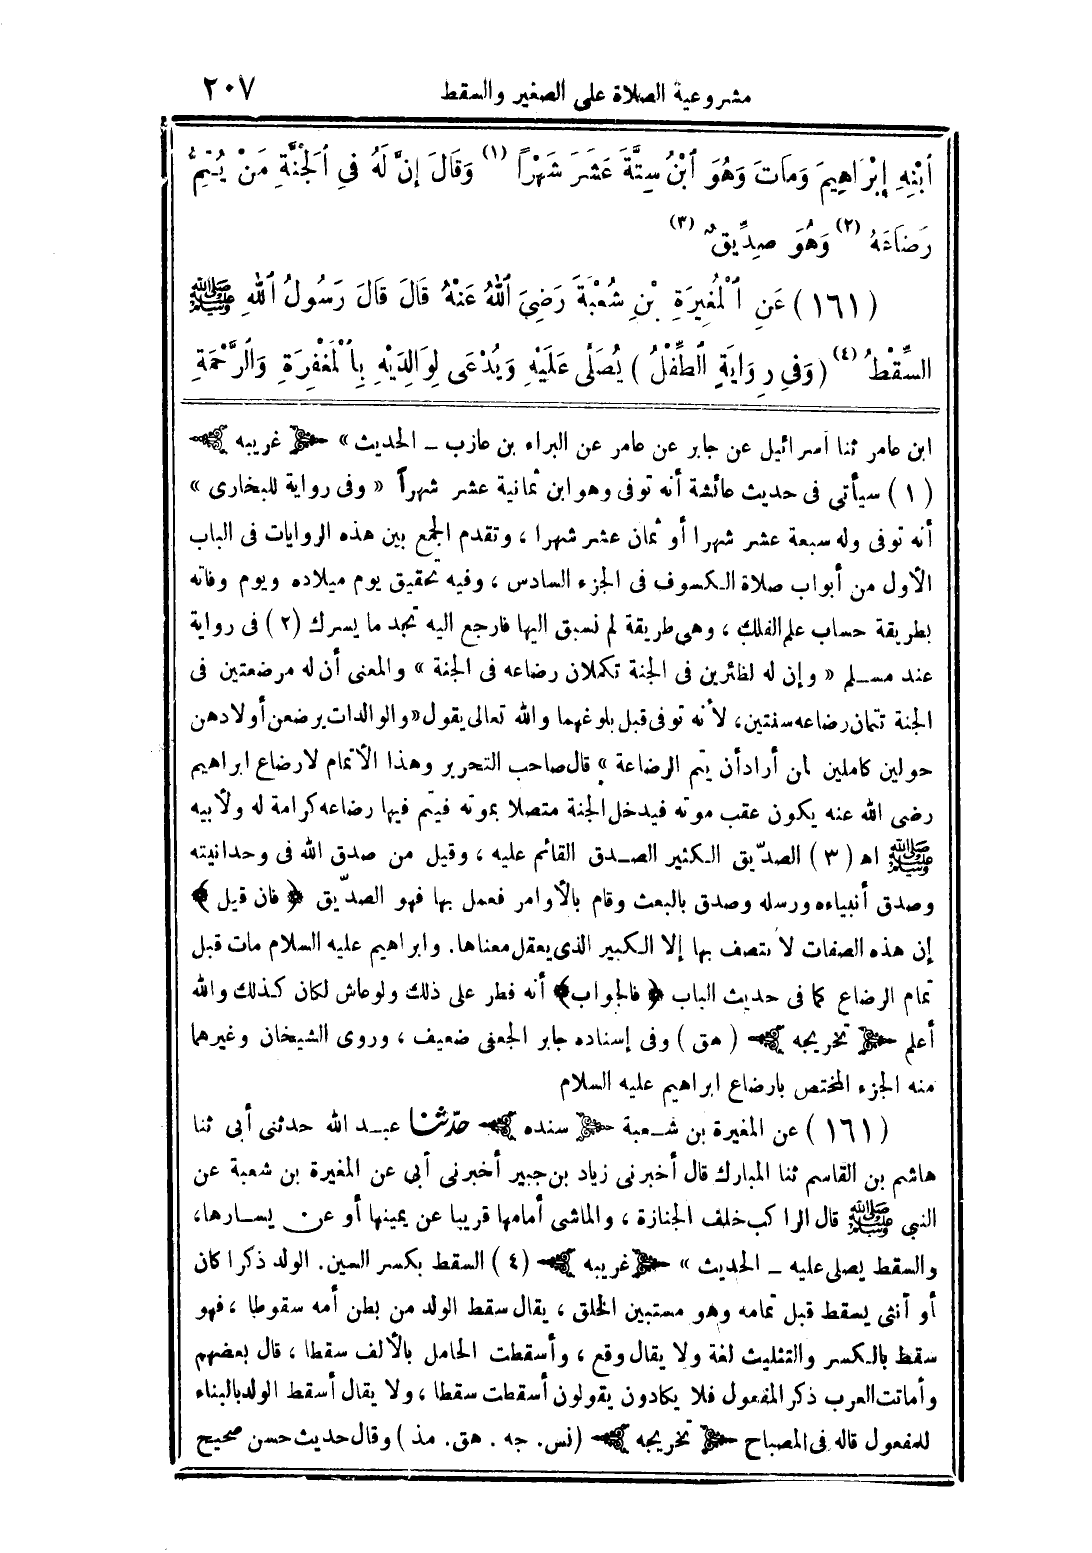 مشروعية الصلاة على الصغير والسقط ٢٠٧
ٱبْنِهِ إِبْرَاهِيمَ وَمَاتَ وَهُوَ ٱبْنُ سِتَّةَ عَشَرَ شَهْرًا (١) وَقَالَ إِنَّ لَهُ فِى ٱلْجَنَّةِ مَنْ يُتِمُّ
رَضَاعَهُ (٢) وَهُوَ صِدِّيقٌ (٣)
(١٦١) عَنِ ٱلْمُغِيرَةِ بْنِ شُعْبَةَ رَضِيَ ٱللهُ عَنْهُ قَالَ قَالَ رَسُولُ ٱللهِ ﷺ
السِّقْطُ (٤) (وَفِى رِوَايَةٍ ٱلطِّفْلُ) يُصَلَّى عَلَيْهِ وَيُدْعَى لِوَالِدَيْهِ بِٱلْمَغْفِرَةِ وَٱلرَّحْمَةِ
ابن عامر ثنا اسرائيل عن جابر عن عامر عن البراء بن عازب ـ الحديث » غريبه
(١) سيأتى فى حديث عائشة أنه توفى وهو ابن ثمانية عشر شهراً « وفى رواية للبخارى »
أنه توفى وله سبعة عشر شهرا أو ثمان عشر شهرا ، وتقدم الجمع بين هذه الروايات فى الباب
الأول من أبواب صلاة الكسوف فى الجزء السادس ، وفيه تحقيق يوم ميلاده ويوم وفاته
بطريقة حساب علم الفلك ، وهى طريقة لم نسبق اليها فارجع اليه تجد ما يسرك (٢) فى رواية
عند مسلم « وإن له لظئرين فى الجنة تكملان رضاعه فى الجنة » والمعنى أن له مرضعتين فى
الجنة تتمان رضاعه سنتين، لأنه توفى قبل بلوغهما والله تعالى يقول « والوالدات يرضعن أولادهن
حولين كاملين لمن أراد أن يتم الرضاعة » قال صاحب التحرير وهذا الأتمام لارضاع ابراهيم
رضى الله عنه يكون عقب موته فيدخل الجنة متصلا بموته فيتم فيها رضاعه كرامة له ولأبيه
ﷺ اه (٣) الصدّيق الكثير الصدق القائم عليه ، وقيل من صدق الله فى وحدانيته
وصدق أنبياءه ورسله وصدق بالبعث وقام بالأوامر فعمل بها فهو الصدّيق ﴿ فان قيل ﴾
إن هذه الصفات لا يتصف بها إلا الكبير الذى يعقل معناها. وابراهيم عليه السلام مات قبل
تمام الرضاع كما فى حديث الباب ﴿ فالجواب ﴾ أنه فطر على ذلك ولو عاش لكان كذلك والله
أعلم تخريجه (هق) وفى إسناده جابر الجعفى ضعيف ، وروى الشيخان وغيرهما
منه الجزء المختص بارضاع ابراهيم عليه السلام
(١٦١) عن المغيرة بن شعبة سنده حدّثنا عبد الله حدثنى أبى ثنا
هاشم بن القاسم ثنا المبارك قال أخبرنى زياد بن جبير أخبرنى أبى عن المغيرة بن شعبة عن
النبى ﷺ قال الراكب خلف الجنازة ، والماشى أمامها قريبا عن يمينها أو عن يسارها،
والسقط يصلى عليه ـ الحديث » غريبه (٤) السقط بكسر السين. الولد ذكرا كان
أو أنثى يسقط قبل تمامه وهو مستبين الخلق ، يقال سقط الولد من بطن أمه سقوطا ، فهو
سقط بالكسر والتثليث لغة ولا يقال وقع ، وأسقطت الحامل بالألف سقطا ، قال بعضهم
وأماتت العرب ذكر المفعول فلا يكادون يقولون أسقطت سقطا ، ولا يقال أسقط الولد بالبناء
للمفعول قاله فى المصباح تخريجه (نس. جه . هق. مذ) وقال حديث حسن صحيح